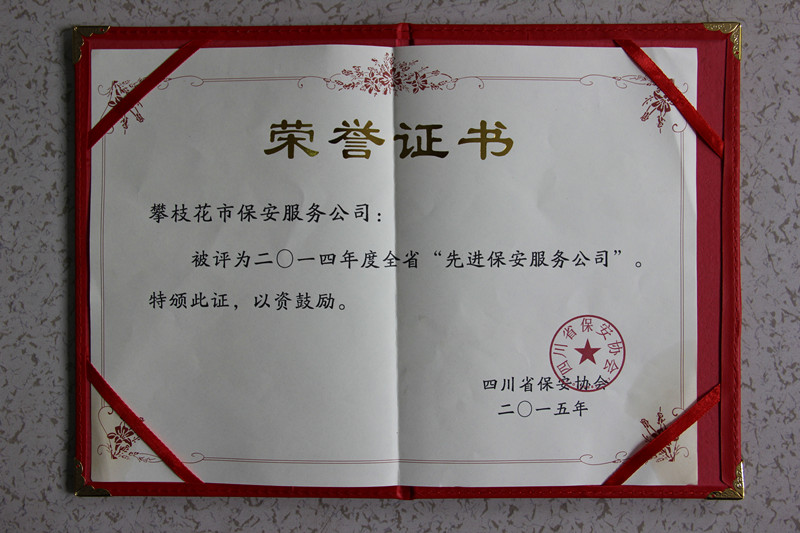 荣誉证书
攀枝花市保安服务公司：
被评为二〇一四年度全省“先进保安服务公司”。
特颁此证，以资鼓励。
四川省保安协会
四川省保安协会
二〇一五年